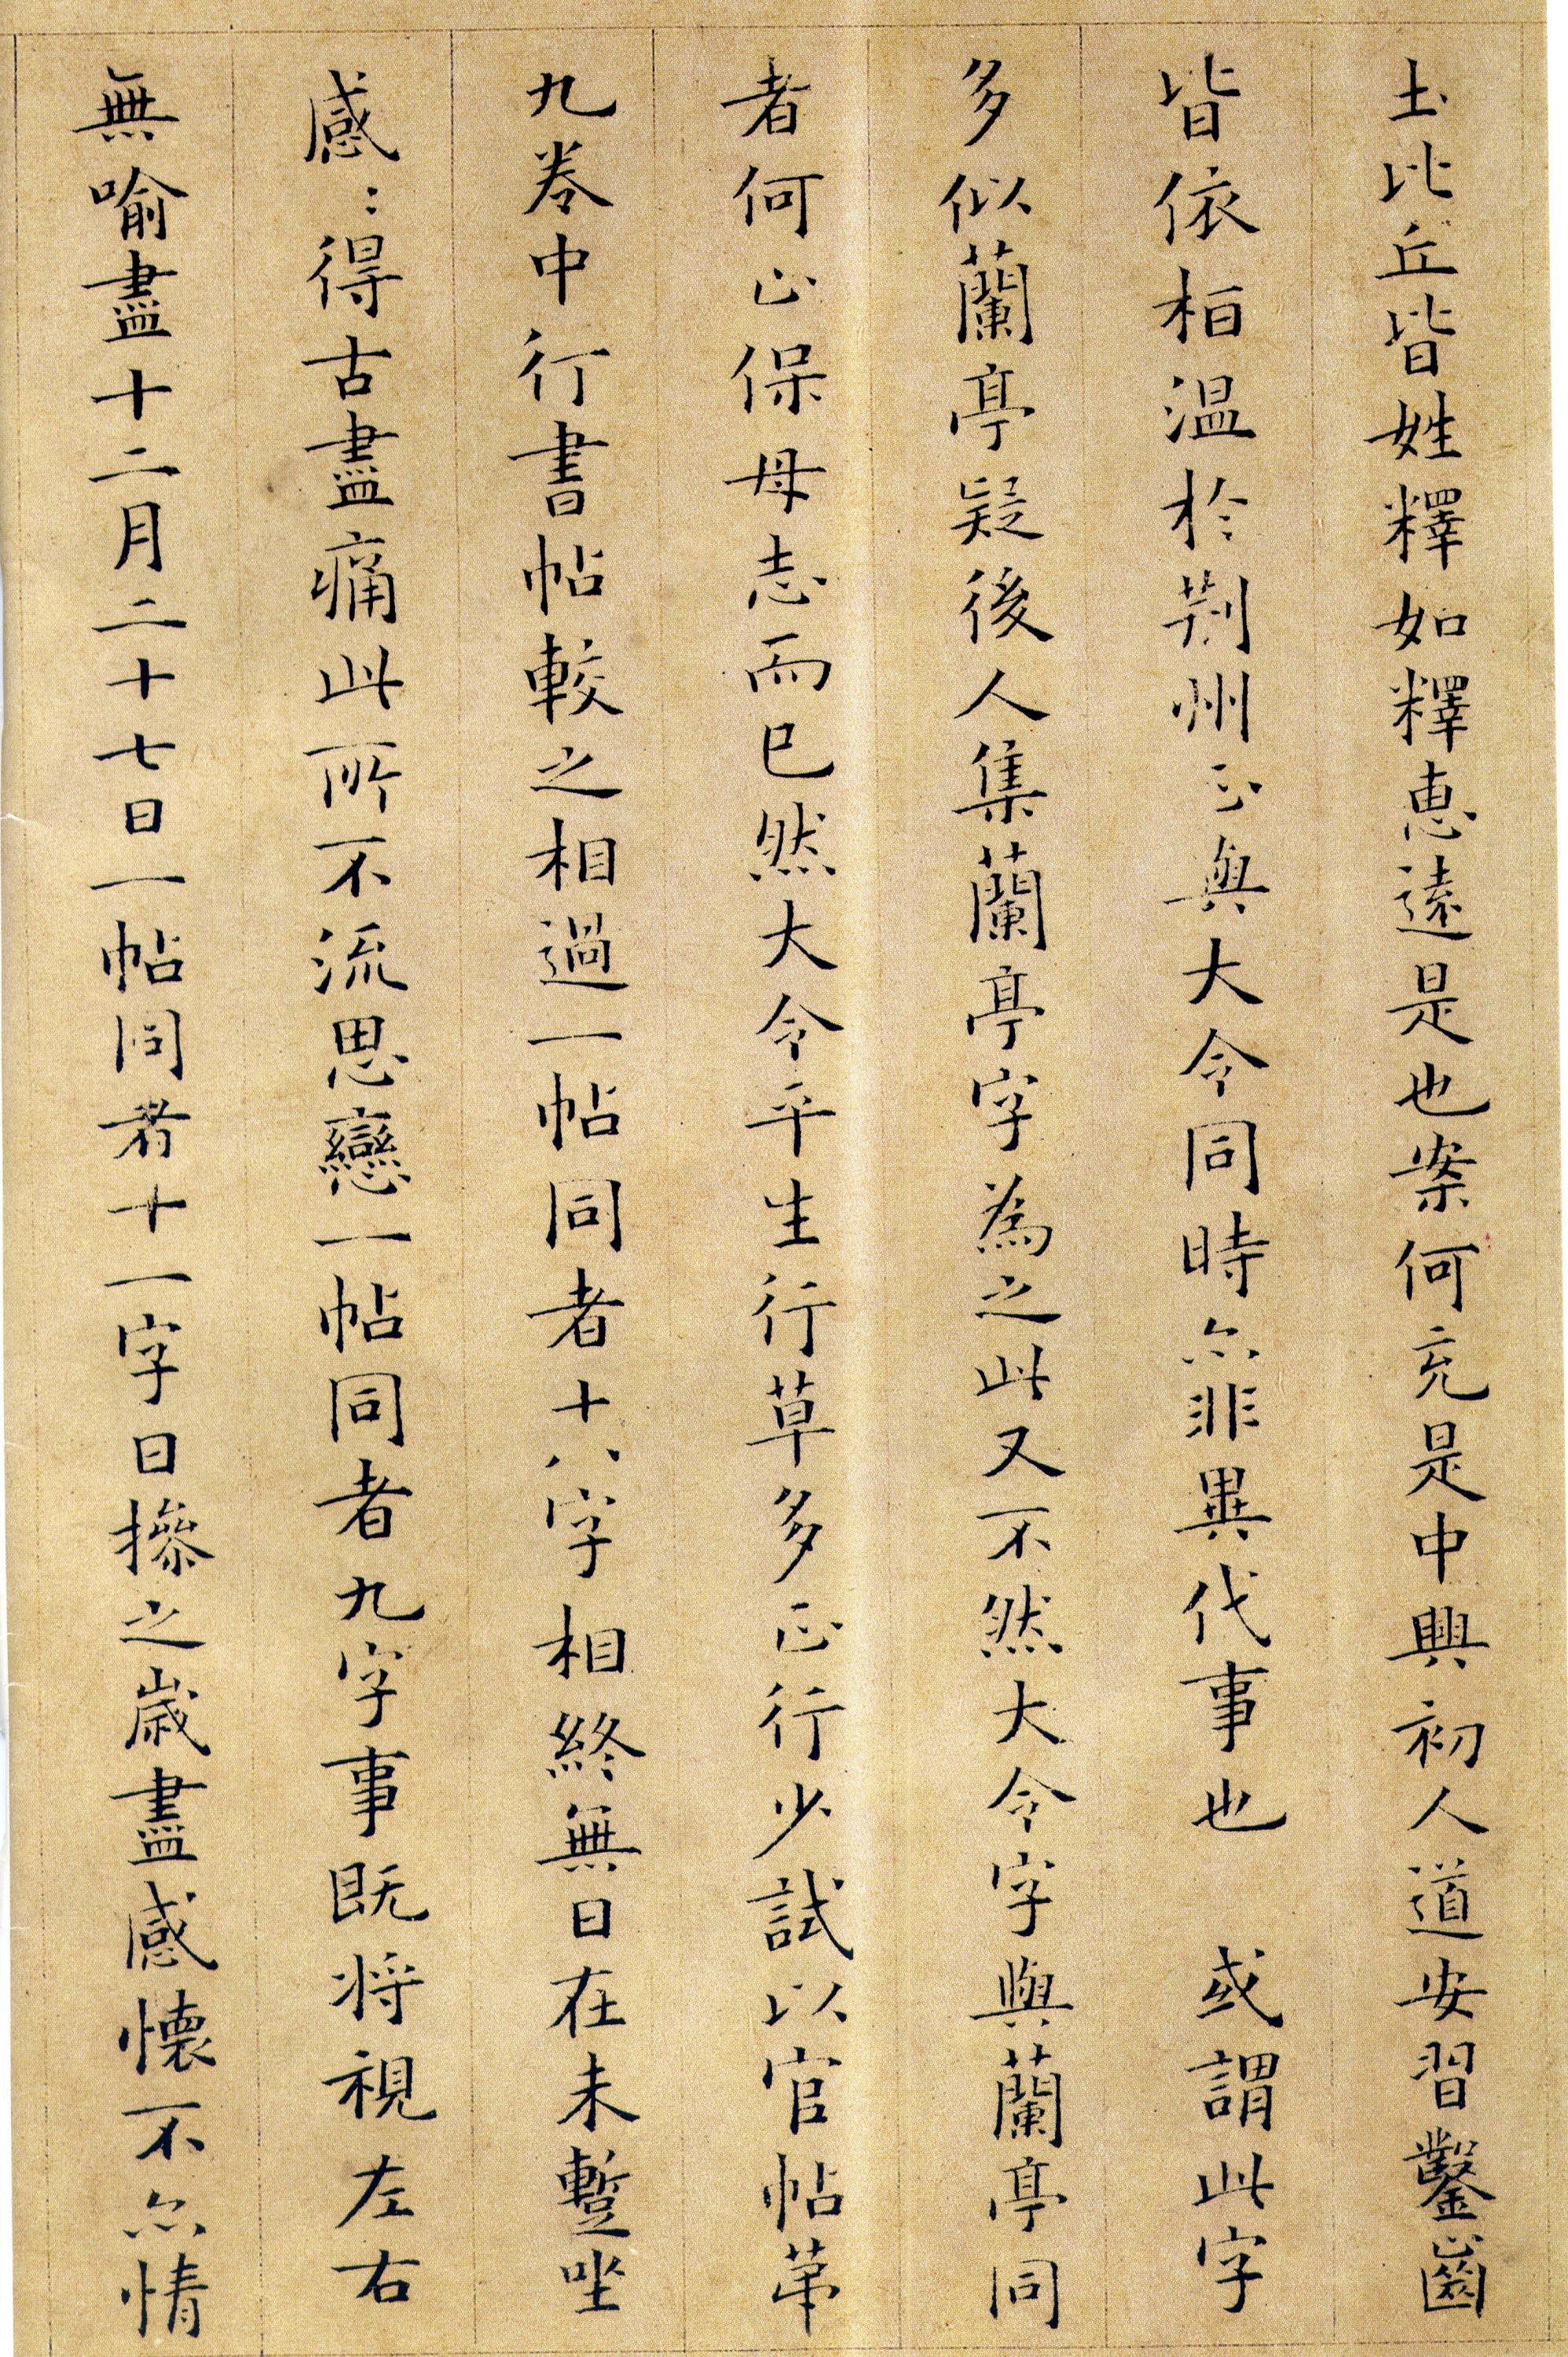 土比丘皆姓釋如釋惠遠是也案何充是中興初人道安習鑿齒
皆依桓温於荆州正與大令同時亦非異代事也 或謂此字
多似蘭亭疑後人集蘭亭字為之此又不然大令字與蘭亭同
者何止保母志而已然大令平生行草多正行少試以官帖苐
九卷中行書帖較之相過一帖同者十八字相終無日在未蹔坐
感:得古盡痛此所不流思戀一帖同者九字事既将視左右
無喻盡十二月二十七日一帖同者十一字日摻之嵗盡感懐不亦情